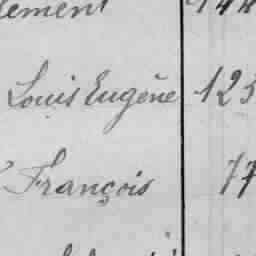 lement 144
Louis Eugène 123
François 77